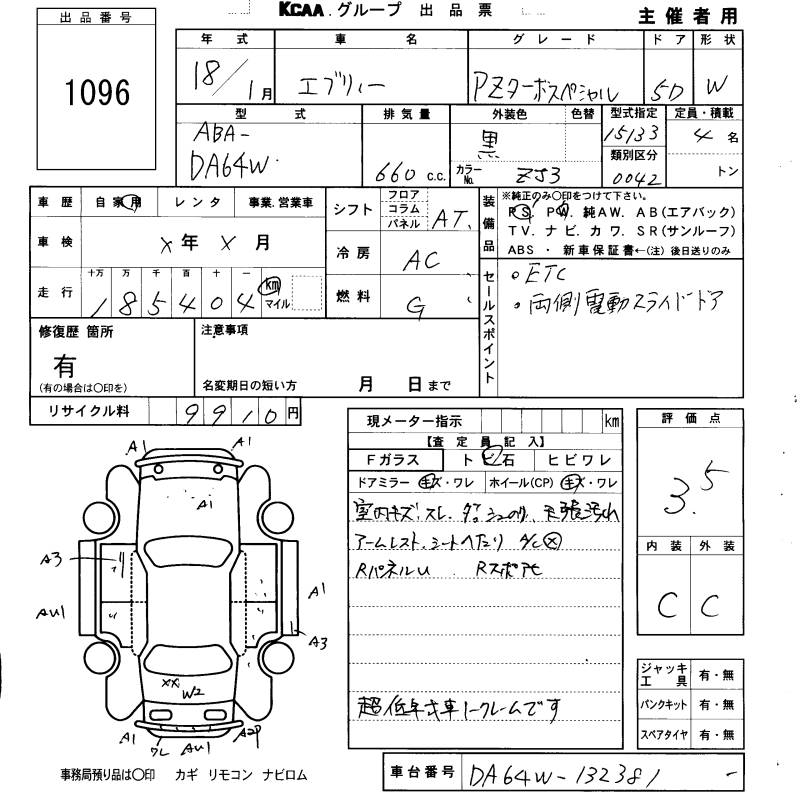 KCAA.グループ 出品票
主催者用
出品番号
1096
年式 車名 グレード ドア 形状
18/1月 エブリィー PZターボスペシャル 5D W
型式 排気量 外装色 色替 型式指定 定員・積載
ABA-
DA64W 660 c.c. 黒 15133 4名
類別区分
カラーNo. ZJ3 0042 トン
車歴 自家用 レンタ 事業.営業車
車検 X年 X月
走行 十万 万 千 百 十 一
185404 km マイル
シフト フロア コラム パネル AT.
冷房 AC
燃料 G
装備品
※純正のみ〇印をつけて下さい。
PS. PW. 純AW. AB(エアバック)
TV. ナビ. カワ. SR(サンルーフ)
ABS ・ 新車保証書←(注)後日送りのみ
セールスポイント
・ETC
・両側電動スライドドア
修復歴 箇所
有
(有の場合は〇印を)
注意事項
名変期日の短い方 月 日まで
リサイクル料 9910円
現メーター指示 km
【査定員記入】
Fガラス トビ石 ヒビワレ
ドアミラー キズ・ワレ ホイール(CP) キズ・ワレ
室内キズ.スレ.
アームレスト.シートへたり A/C
RパネルU
超低年式車ノークレームです
評価点
3.5
内装 外装
C C
ジャッキ工具 有・無
パンクキット 有・無
スペアタイヤ 有・無
A1 A1
A1
A3
AU1
A1
A3
XX W2
A1 ワレ AU1
事務局預り品は〇印 カギ リモコン ナビロム
車台番号 DA64W-132381